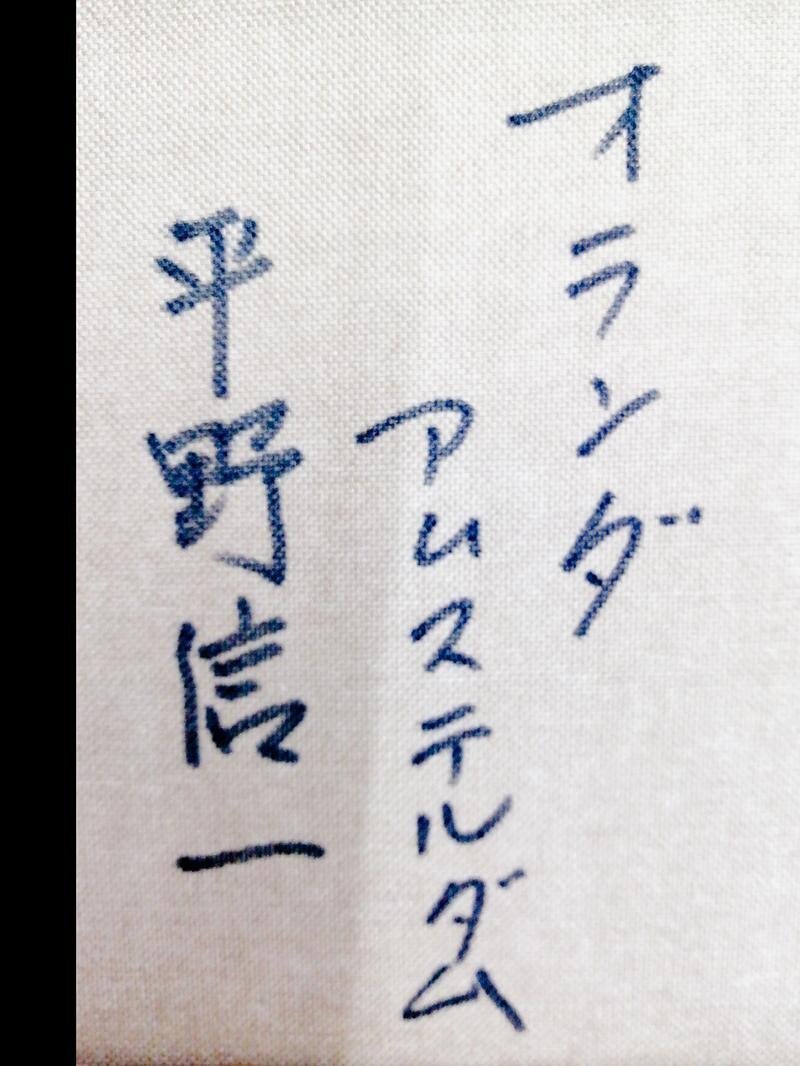 オランダ
アムステルダム
平野信一